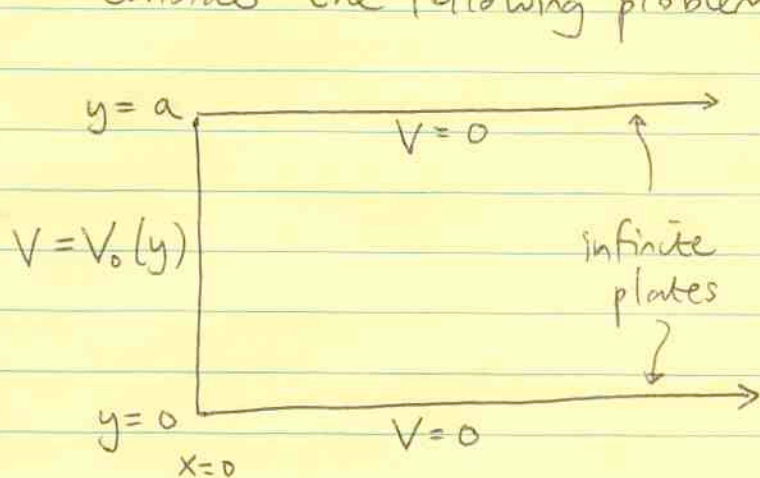 the following problem
y = a
V = 0
V = V₀(y)
infinite
plates
y = 0
V = 0
x = 0